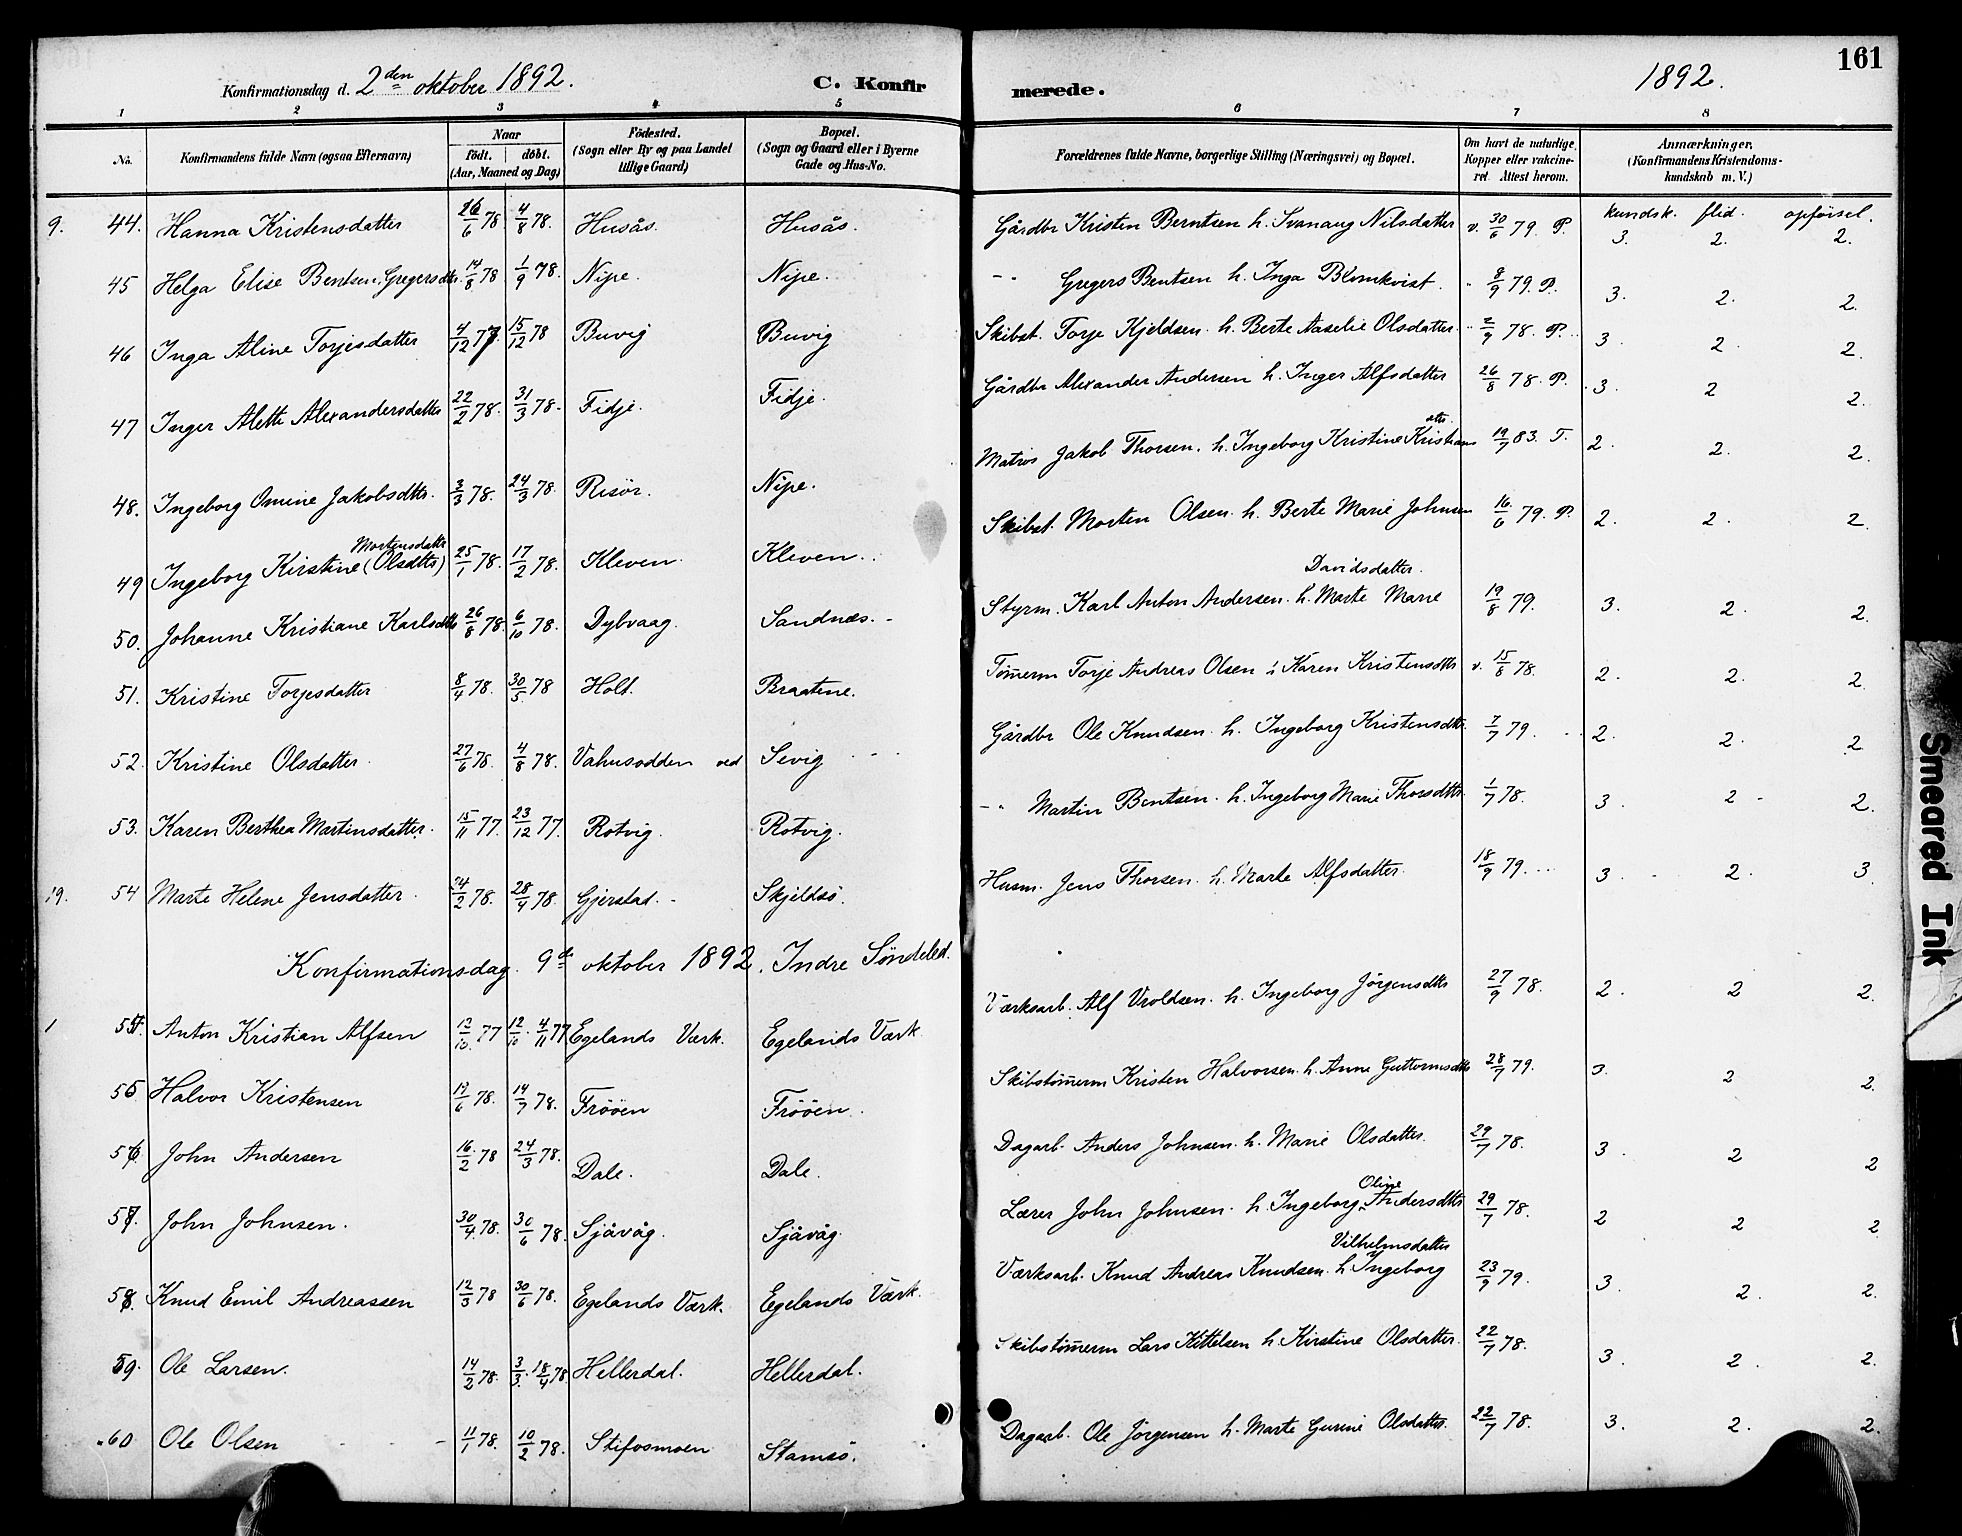 161
Konfirmationsdag d. 2den oktober 1892. C. Konfirmerede. 1892.
1 2 3 4 5 6 7 8
No. Konfirmandens fulde Navn (ogsaa Efternavn) Naar født. døbt. (Aar, Maaned og Dag) Fødested. (Sogn eller By og paa Landet tillige Gaard) Bopæl. (Sogn og Gaard eller i Byerne Gade og Hus-No. Forældrenes fulde Navne, borgerlige Stilling (Næringsvei) og Bopæl. Om havt de naturlige Kopper eller vakcineret. Attest herom. Anmærkninger. (Konfirmandens Kristendomskundskab m. V.)
kundsk. flid. opførsel.
9. 44. Hanna Kristensdatter 26/6 78. 4/8 78. Husås. Husås. Gårdbr Kristen Berntsen h. Svanaug Nilsdatter v. 30/6 79. P. 3. 2. 2.
45 Helga Elise Bentsen, Gregersdtr. 14/8 78 1/9 78. Nipe. Nipe. -"- Gregers Bentsen h. Inga Blomkvist. " 8/9 79. P. 3. 2. 2.
46 Inga Aline Torjesdatter 4/12 77. 15/12 78 Buvig Buvig Skibst. Torje Kjeldsen h. Berte Aaselie Olsdatter. " 2/9 78. P. 3. 2. 2.
47 Inger Alette Alexandersdatter 22/2 78. 31/3 78. Fidje. Fidje. Gårdbr Alexander Andersen h. Inger Alfsdatter 26/8 78. P. 3. 2 2.
48. Ingeborg Omine Jakobsdtr. 3/3 78. 24/3 78. Risør. Nipe. Matros Jakob Thorsen. h. Ingeborg Kristine Kristiansdtr. 19/7 83. T. 2. 2. 2.
49 Ingeborg Kirstine Mortensdatter (Olsdtr) 25/1 78. 17/2 78. Kleven. Kleven. Skibst. Morten Olsen. h. Berte Marie Johnsen 16/6 79. P. 2. 2. 2.
50. Johanne Kristiane Karlsdtr 26/8 78. 6/10 78. Dybvaag. Sandnæs. Styrm. Karl Anton Andersen. h. Marte Marie Davidsdatter. 19/8 79. 3. 2. 2.
51. Kristine Torjesdatter 8/4 78. 30/5. 78 Holt. Braatene. Tømerm Torje Andreas Olsen h. Karen Kristensdtr v. 15/8 78. 2. 2. 2.
52. Kristine Olsdatter. 27/6 78. 4/8 78. Vahusodden ved Sevig Gårdbr Ole Knudsen. h. Ingeborg Kristensdtr. 7/7 79. 2. 2. 2
53. Karen Berthea Martinsdatter. 15/11 77. 23/12 77. Rotvig. Rotvig. -"- Martin Bentsen. h. Ingeborg Marie Thorsdtr. 1/7 78. 3. 2 2.
19. 54 Marte Helene Jensdatter. 24/2 78. 28/4 78. Gjerstad. Skjeldsø. Husm. Jens Thorsen. h. Marte Alfsdatter. 18/9 79. 3. 2. 3.
Konfirmationsdag. 9de oktober 1892. Indre Søndeled.
1 55. Anton Kristian Alfsen 12/10. 77 12/10. 4/11 77 Egelands Værk. Egelands Værk. Værksarb. Alf Vroldsen. h. Ingeborg Jörgensdtr 27/9 78. 2. 2 2.
56 Halvor Kristensen 17/6 78. 14/7 78. Frööen Frööen. Skibstømerm Kristen Halvorsen. h. Anne Guttormsdtr 28/7 79. 3. 2 2.
56. John Andersen 16/2 78 24/3 78. Dale. Dale. Dagarb. Anders Johnsen. h. Marie Olsdatter. 29/7 78. 3. 2 2
57. John Johnsen. 30/4. 78. 30/6 78. Sjåvåg. Sjåvåg. Lærer John Johnsen. h. Ingeborg Oline Andersdtr 29/7 78. 2 2 2
58. Knud Emil Andreassen 12/3 78 30/6 78. Egelands Værk. Egelands Værk. Værksarb. Knud Andreas Knudsen. h. Ingeborg Vilhelmsdatter 23/9 79. 3. 2. 2.
59. Ole Larsen. 14/2 78. 3/3. 18/4 78 Hellerdal. Hellerdal. Skibstømerm Lars Kittelsen h. Kirstine Olsdatter. 22/7 78. 3. 2. 2.
60 Ole Olsen 11/1 78. 10/2 78. Stifosmoen Stamsö. Dagarb. Ole Jörgensen h. Marte Gurine Olsdatter. 22/7 78. 3. 2. 2.
Smeared Ink